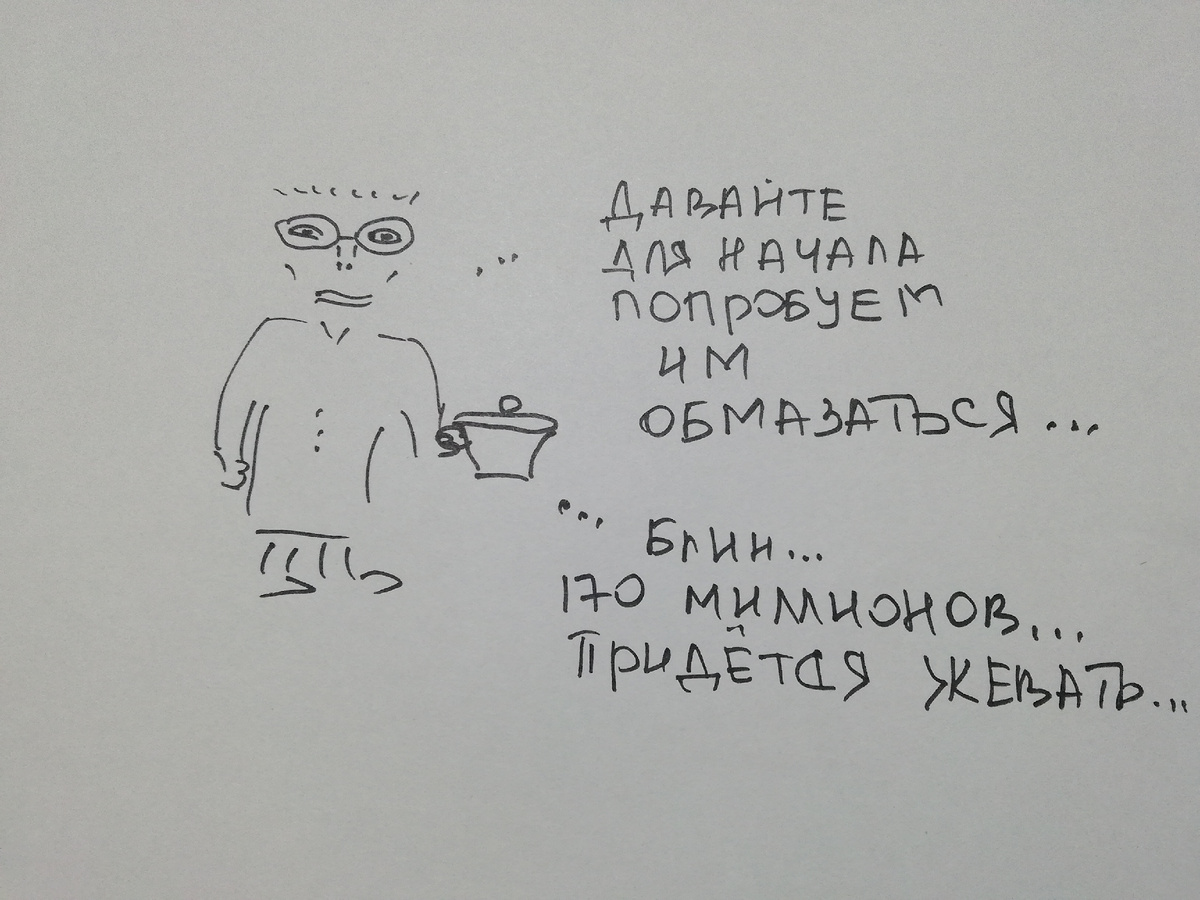 ... ДАВАЙТЕ
ДЛЯ НАЧАЛА
ПОПРОБУЕМ
ИМ
ОБМАЗАТЬСЯ...
... БЛИН...
170 МИМИОНОВ...
ПРИДЁТСЯ ЖЕВАТЬ...